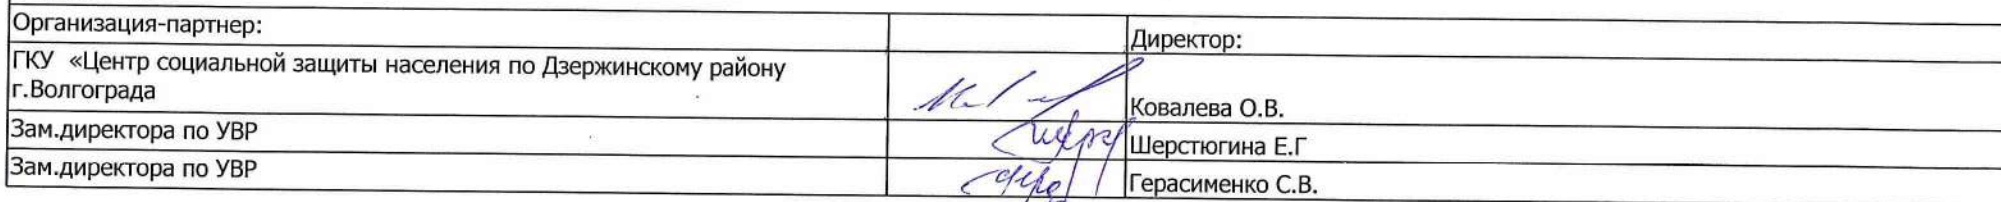 Организация-партнер:
Директор:
ГКУ «Центр социальной защиты населения по Дзержинскому району
г.Волгограда
Ковалева О.В.
Зам.директора по УВР
Шерстюгина Е.Г
Зам.директора по УВР
Герасименко С.В.